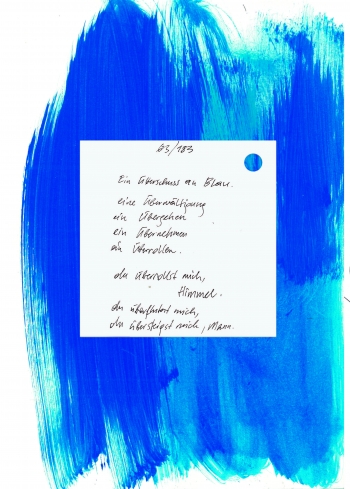 63/183
Ein Überschuss an Blau.
eine Überwältigung
ein Übergehen
ein Übernehmen
ein Überrollen.
du überrollst mich,
Himmel.
du überflutest mich,
du übersteigst mich, Mann.